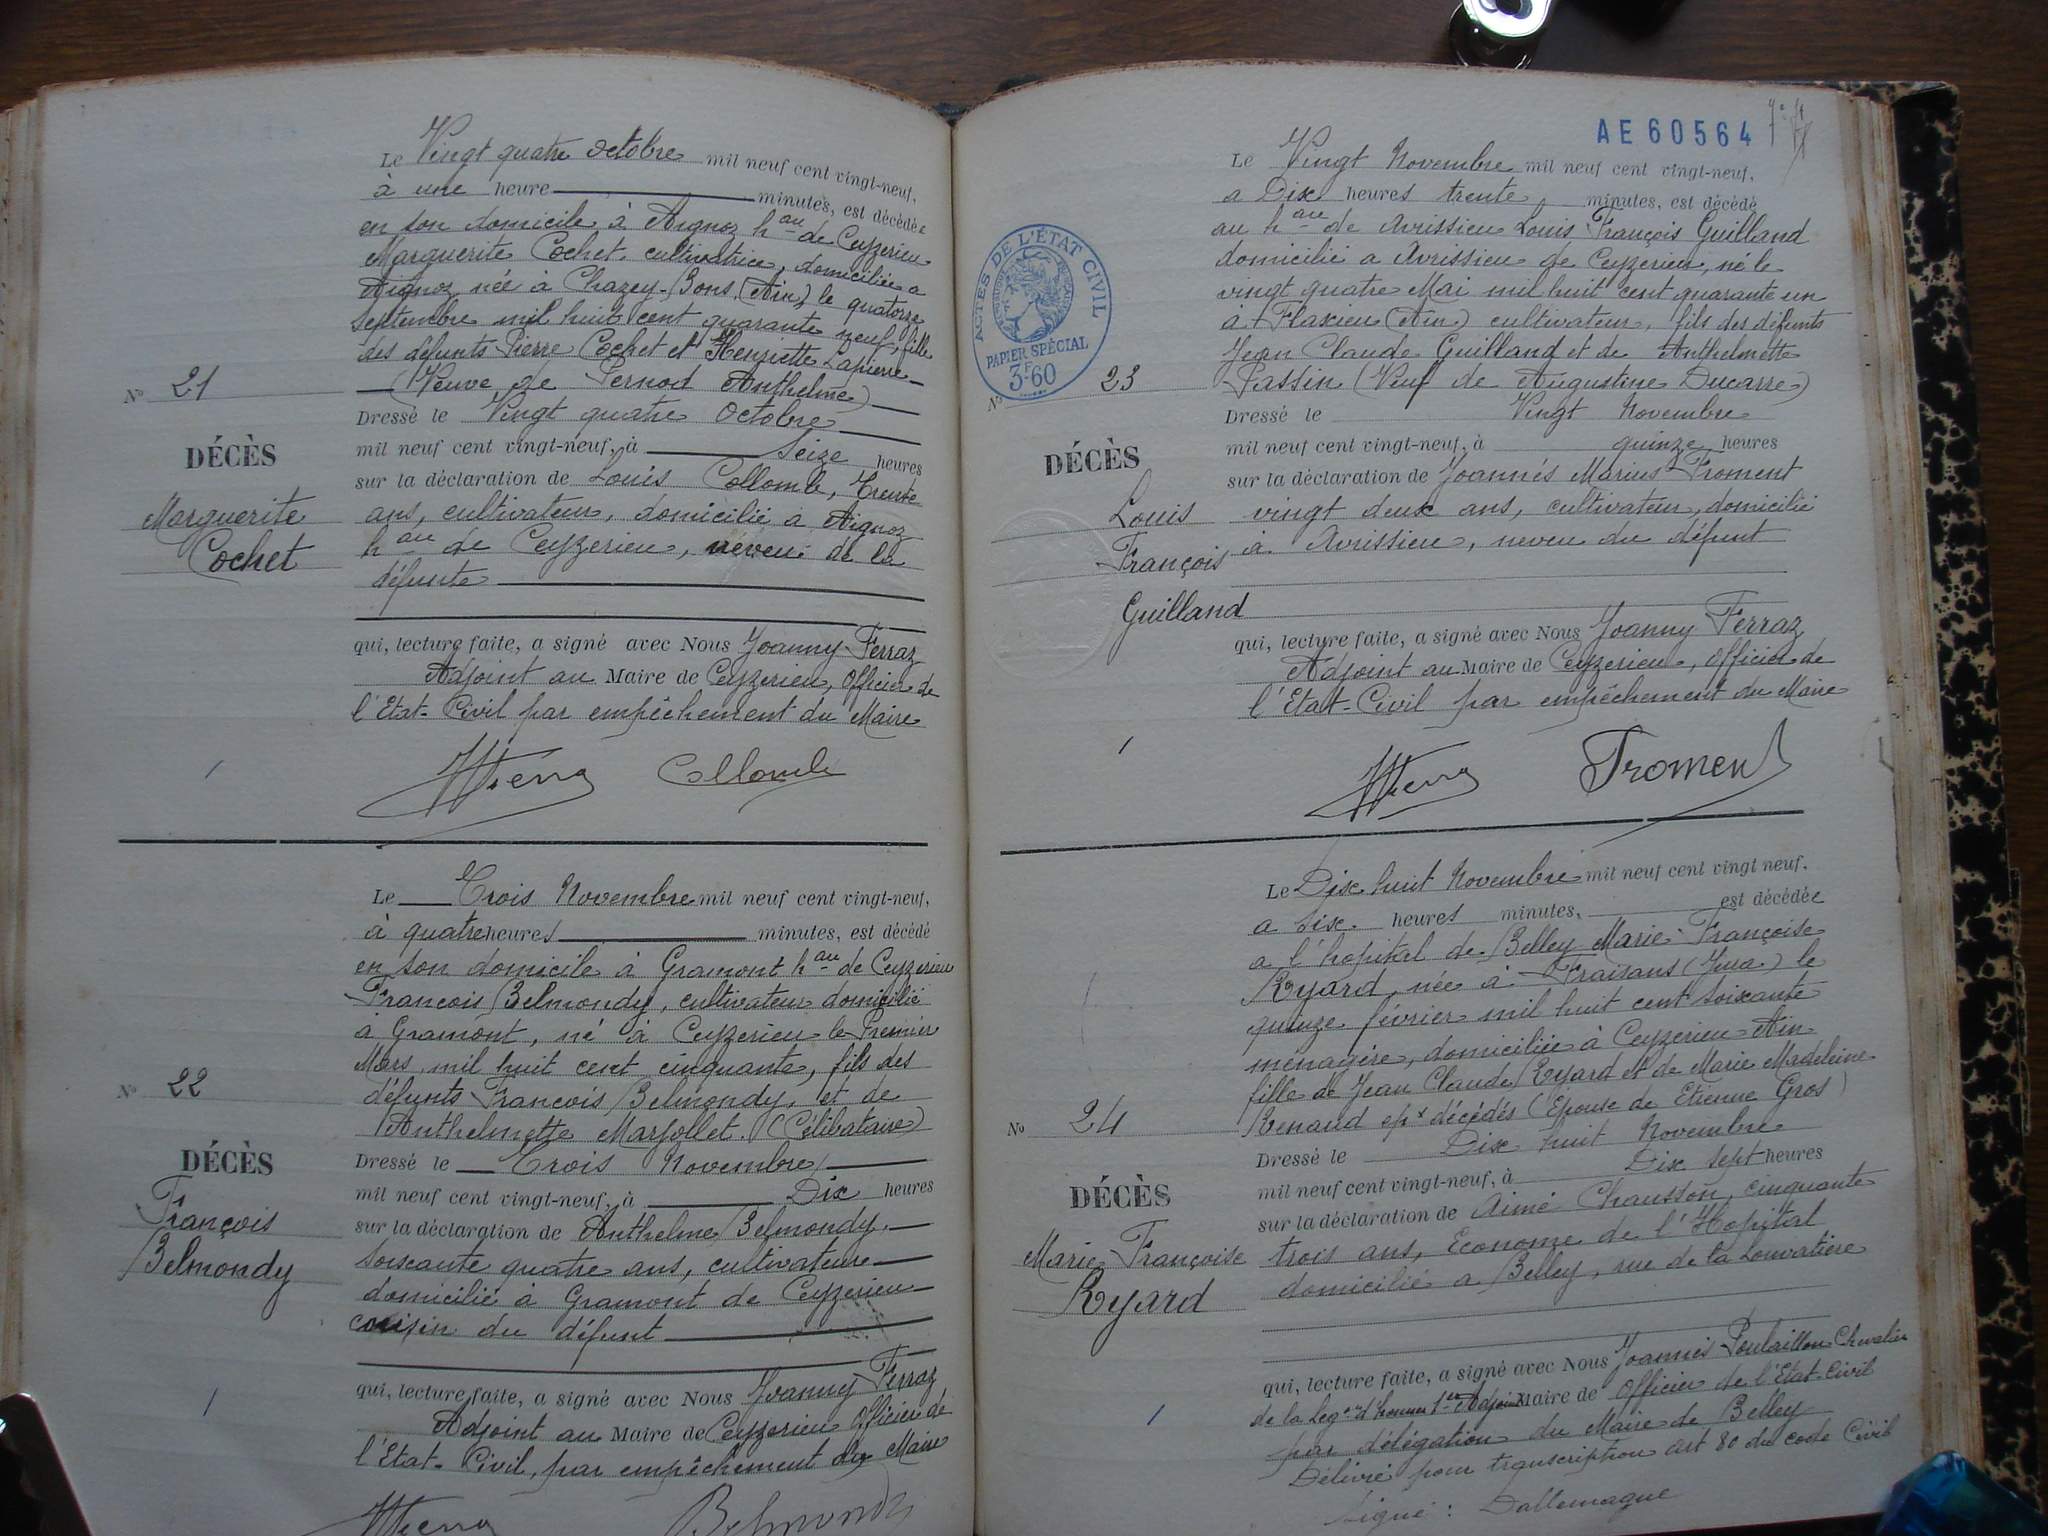 Le Vingt quatre octobre mil neuf cent vingt-neuf,
à une heure minutes, est décédée
en son domicile à Aignoz hau de Ceyzerieu
Marguerite Cochet, cultivatrice, domiciliée a
Aignoz née à Chazey-Bons (Ain) le quatorze
septembre mil huit cent quarante neuf, fille
des défunts Pierre Cochet et Henriette Lapierre
(Veuve de Pernod Anthelme)
Nº 21
Dressé le Vingt quatre Octobre
mil neuf cent vingt-neuf, à Seize heures
DÉCÈS
sur la déclaration de Louis Collomb, Trente
Marguerite
ans, cultivateur, domicilié à Aignoz
Cochet
hau de Ceyzerieu, neveu de la
défunte
qui, lecture faite, a signé avec Nous Joanny Ferraz
Adjoint au Maire de Ceyzerieu, Officier de
l'Etat-Civil par empêchement du Maire
Collomb
Le Trois Novembre mil neuf cent vingt-neuf,
à quatre heures minutes, est décédé
en son domicile à Gramont hau de Ceyzerieu
François Belmondy, cultivateur domicilié
à Gramont, né à Ceyzerieu le Premier
Mars mil huit cent cinquante, fils des
Nº 22
défunts François Belmondy, et de
Anthelmette Marjollet. (Célibataire)
DÉCÈS
Dressé le Trois Novembre
mil neuf cent vingt-neuf, à Dix heures
François
sur la déclaration de Anthelme Belmondy,
Belmondy
soixante quatre ans, cultivateur
domicilié à Gramont de Ceyzerieu
cousin du défunt
qui, lecture faite, a signé avec Nous Joanny Ferraz
Adjoint au Maire de Ceyzerieu Officier de
l'Etat-Civil, par empêchement du Maire
Belmondy
AE 60564
Le Vingt Novembre mil neuf cent vingt-neuf,
a Dix heures trente minutes, est décédé
au hau de Avrissieu Louis François Guilland
domicilié a Avrissieu de Ceyzerieu, né le
vingt quatre Mai mil huit cent quarante un
a Flaxieu (Ain) cultivateur, fils des défunts
Jean Claude Guilland et de Anthelmette
Passin (Veuf de Augustine Ducarre)
ACTES DE L'ÉTAT CIVIL
PAPIER SPÉCIAL
3F60
Nº 23
Dressé le Vingt Novembre
mil neuf cent vingt-neuf, à quinze heures
DÉCÈS
sur la déclaration de Joannés Marius Froment
Louis
vingt deux ans, cultivateur, domicilié
François
à Avrissieu, neveu du défunt
Guilland
qui, lecture faite, a signé avec Nous Joanny Ferraz
Adjoint au Maire de Ceyzerieu, Officier de
l'Etat-Civil par empêchement du Maire
Froment
Le Dix huit Novembre mil neuf cent vingt neuf,
a Six heures minutes, est décédée
a l'hopital de Belley Marie Françoise
Ryard, née à Fraisans (Jura) le
quinze février mil huit cent soixante
ménagère, domiciliée à Ceyzerieu Ain
fille de Jean Claude Ryard et de Marie Madeleine
Nº 24
Renaud epx décédés (Epouse de Etienne Gros)
Dressé le Dix huit Novembre
DÉCÈS
mil neuf cent vingt-neuf, à Dix sept heures
sur la déclaration de Aimé Chausson, cinquante
Marie Françoise
trois ans, Econome de l'Hopital
Ryard
domicilié a Belley, rue de la Louvatière
qui, lecture faite, a signé avec Nous Joannès Poulaillon Chevalier
de la Legon d'honneur 1er Adjoint Maire de Officier de l'Etat-Civil
par délégation du Maire de Belley
Délivré pour transcription art 80 du code Civil
Signé : Dallemagne